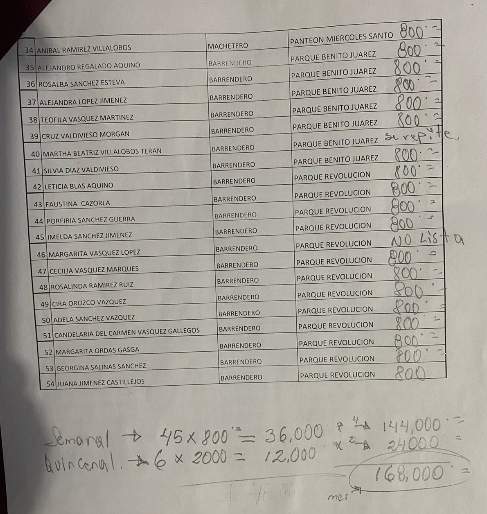 34 ANIBAL RAMIREZ VILLALOBOS MACHETERO PANTEON MIERCOLES SANTO 800.=
35 ALEJANDRO REGALADO AQUINO BARRENDERO PARQUE BENITO JUAREZ 800.=
36 ROSALBA SANCHEZ ESTEVA BARRENDERO PARQUE BENITO JUAREZ 800.=
37 ALEJANDRA LOPEZ JIMENEZ BARRENDERO PARQUE BENITO JUAREZ 800.=
38 TEOFILA VASQUEZ MARTINEZ BARRENDERO PARQUE BENITO JUAREZ 800.=
39 CRUZ VALDIVIESO MORGAN BARRENDERO PARQUE BENITO JUAREZ 800.=
40 MARTHA BEATRIZ VILLALOBOS TERAN BARRENDERO PARQUE BENITO JUAREZ se repite
41 SILVIA DIAZ VALDIVIESO BARRENDERO PARQUE BENITO JUAREZ 800.=
42 LETICIA BLAS AQUINO BARRENDERO PARQUE REVOLUCION 800.=
43 FAUSTINA CAZORLA BARRENDERO PARQUE REVOLUCION 800.=
44 PORFIRIA SANCHEZ GUERRA BARRENDERO PARQUE REVOLUCION 800.=
45 IMELDA SANCHEZ JIMENEZ BARRENDERO PARQUE REVOLUCION 800.=
46 MARGARITA VASQUEZ LOPEZ BARRENDERO PARQUE REVOLUCION NO Lista
47 CECILIA VASQUEZ MARQUES BARRENDERO PARQUE REVOLUCION 800.=
48 ROSALINDA RAMIREZ RUIZ BARRENDERO PARQUE REVOLUCION 800.=
49 CIRA OROZCO VAZQUEZ BARRENDERO PARQUE REVOLUCION 800
50 ADELA SANCHEZ VAZQUEZ BARRENDERO PARQUE REVOLUCION 800.=
51 CANDELARIA DEL CARMEN VASQUEZ GALLEGOS BARRENDERO PARQUE REVOLUCION 800.=
52 MARGARITA ORDAS GASGA BARRENDERO PARQUE REVOLUCION 800.=
53 GEORGINA SALINAS SANCHEZ BARRENDERO PARQUE REVOLUCION 800.=
54 JUANA JIMENEZ CASTILLEJOS BARRENDERO PARQUE REVOLUCION 800
Semanal → 45 x 800.= = 36,000 x 4 → 144,000.=
Quincenal. → 6 x 2000 = 12,000 x 2 → 24000 =
mes → 168,000.=